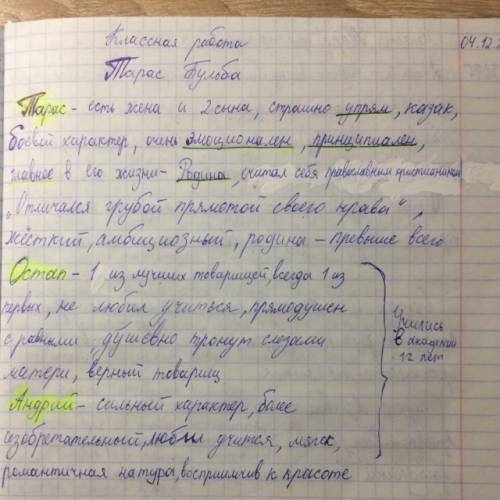 Классная работа
04.12.
Тарас Бульба
Тарас - есть жена и 2 сына, страшно упрям, казак,
боевой характер, очень эмоционален, принципиален,
главное в его жизни - Родина, считал себя православным христианином
„Отличался грубой прямотой своего нрава",
жёсткий, амбициозный, родина - превыше всего
Остап - 1 из лучших товарищей, всегда 1 из
первых, не любил учиться, прямодушен
с равными, душевно тронут слезами
матери, верный товарищ
Андрий - сильный характер, более
изобретательный, любил учится, мягк,
романтичная натура, восприимчив к красоте
Учились
в академии
12 лет